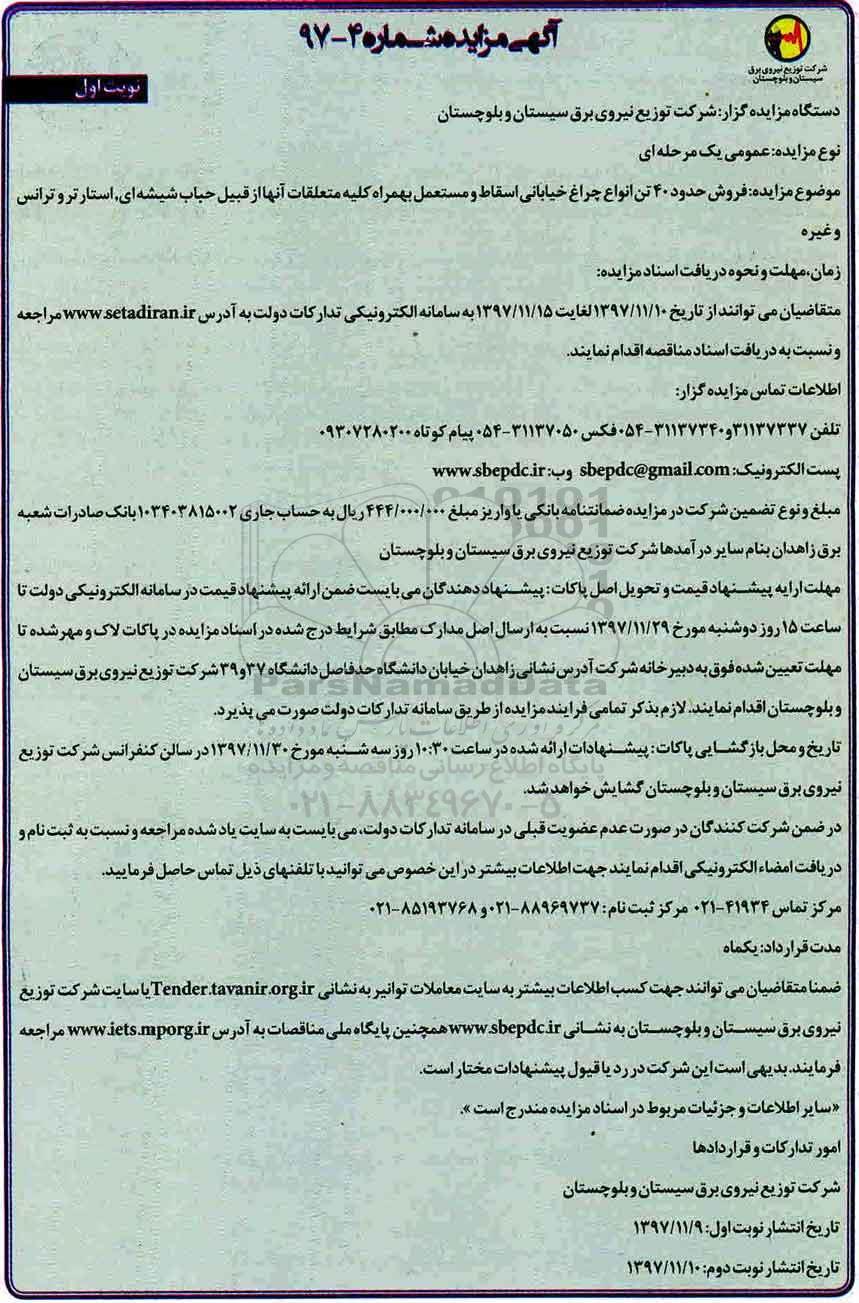 آگهی مزایده شماره ۴-۹۷
شرکت توزیع نیروی برق
سیستان و بلوچستان
نوبت اول
دستگاه مزایده گزار: شرکت توزیع نیروی برق سیستان و بلوچستان
نوع مزایده: عمومی یک مرحله ای
موضوع مزایده: فروش حدود ۴۰ تن انواع چراغ خیابانی اسقاط و مستعمل بهمراه کلیه متعلقات آنها از قبیل حباب شیشه ای, استارتر و ترانس
و غیره
زمان، مهلت و نحوه دریافت اسناد مزایده:
متقاضیان می توانند از تاریخ ۱۳۹۷/۱۱/۱۰ لغایت ۱۳۹۷/۱۱/۱۵ به سامانه الکترونیکی تدارکات دولت به آدرس www.setadiran.ir مراجعه
و نسبت به دریافت اسناد مناقصه اقدام نمایند.
اطلاعات تماس مزایده گزار:
تلفن ۳۱۱۳۷۳۳۷ و ۳۱۱۳۷۳۴۰-۰۵۴ فکس ۳۱۱۳۷۰۵۰-۰۵۴ پیام کوتاه ۰۹۳۰۷۲۸۰۲۰۰
پست الکترونیک: sbepdc@gmail.com وب: www.sbepdc.ir
مبلغ و نوع تضمین شرکت در مزایده ضمانتنامه بانکی یا واریز مبلغ ۴۴۴/۰۰۰/۰۰۰ ریال به حساب جاری ۱۰۳۴۰۳۸۱۵۰۰۲ بانک صادرات شعبه
برق زاهدان بنام سایر درآمدها شرکت توزیع نیروی برق سیستان و بلوچستان
مهلت ارایه پیشنهاد قیمت و تحویل اصل پاکات: پیشنهاد دهندگان می بایست ضمن ارائه پیشنهاد قیمت در سامانه الکترونیکی دولت تا
ساعت ۱۵ روز دوشنبه مورخ ۱۳۹۷/۱۱/۲۹ نسبت به ارسال اصل مدارک مطابق شرایط درج شده در اسناد مزایده در پاکات لاک و مهر شده تا
مهلت تعیین شده فوق به دبیرخانه شرکت آدرس نشانی زاهدان خیابان دانشگاه حدفاصل دانشگاه ۳۷ و ۳۹ شرکت توزیع نیروی برق سیستان
و بلوچستان اقدام نمایند. لازم بذکر تمامی فرایند مزایده از طریق سامانه تدارکات دولت صورت می پذیرد.
تاریخ و محل بازگشایی پاکات: پیشنهادات ارائه شده در ساعت ۱۰:۳۰ روز سه شنبه مورخ ۱۳۹۷/۱۱/۳۰ در سالن کنفرانس شرکت توزیع
نیروی برق سیستان و بلوچستان گشایش خواهد شد.
در ضمن شرکت کنندگان در صورت عدم عضویت قبلی در سامانه تدارکات دولت، می بایست به سایت یاد شده مراجعه و نسبت به ثبت نام و
دریافت امضاء الکترونیکی اقدام نمایند جهت اطلاعات بیشتر در این خصوص می توانید با تلفنهای ذیل تماس حاصل فرمایید.
مرکز تماس ۴۱۹۳۴-۰۲۱ مرکز ثبت نام: ۸۸۹۶۹۷۳۷-۰۲۱ و ۸۵۱۹۳۷۶۸-۰۲۱
مدت قرارداد: یکماه
ضمنا متقاضیان می توانند جهت کسب اطلاعات بیشتر به سایت معاملات توانیر به نشانی Tender.tavanir.org.ir یا سایت شرکت توزیع
نیروی برق سیستان و بلوچستان به نشانی www.sbepdc.ir همچنین پایگاه ملی مناقصات به آدرس www.iets.mporg.ir مراجعه
فرمایند. بدیهی است این شرکت در رد یا قبول پیشنهادات مختار است.
«سایر اطلاعات و جزئیات مربوط در اسناد مزایده مندرج است».
امور تدارکات و قراردادها
شرکت توزیع نیروی برق سیستان و بلوچستان
تاریخ انتشار نوبت اول: ۱۳۹۷/۱۱/۹
تاریخ انتشار نوبت دوم: ۱۳۹۷/۱۱/۱۰
ParsNamadData
پایگاه اطلاع رسانی مناقصه و مزایده
۰۲۱-۸۸۳۴۹۶۷۰-۵